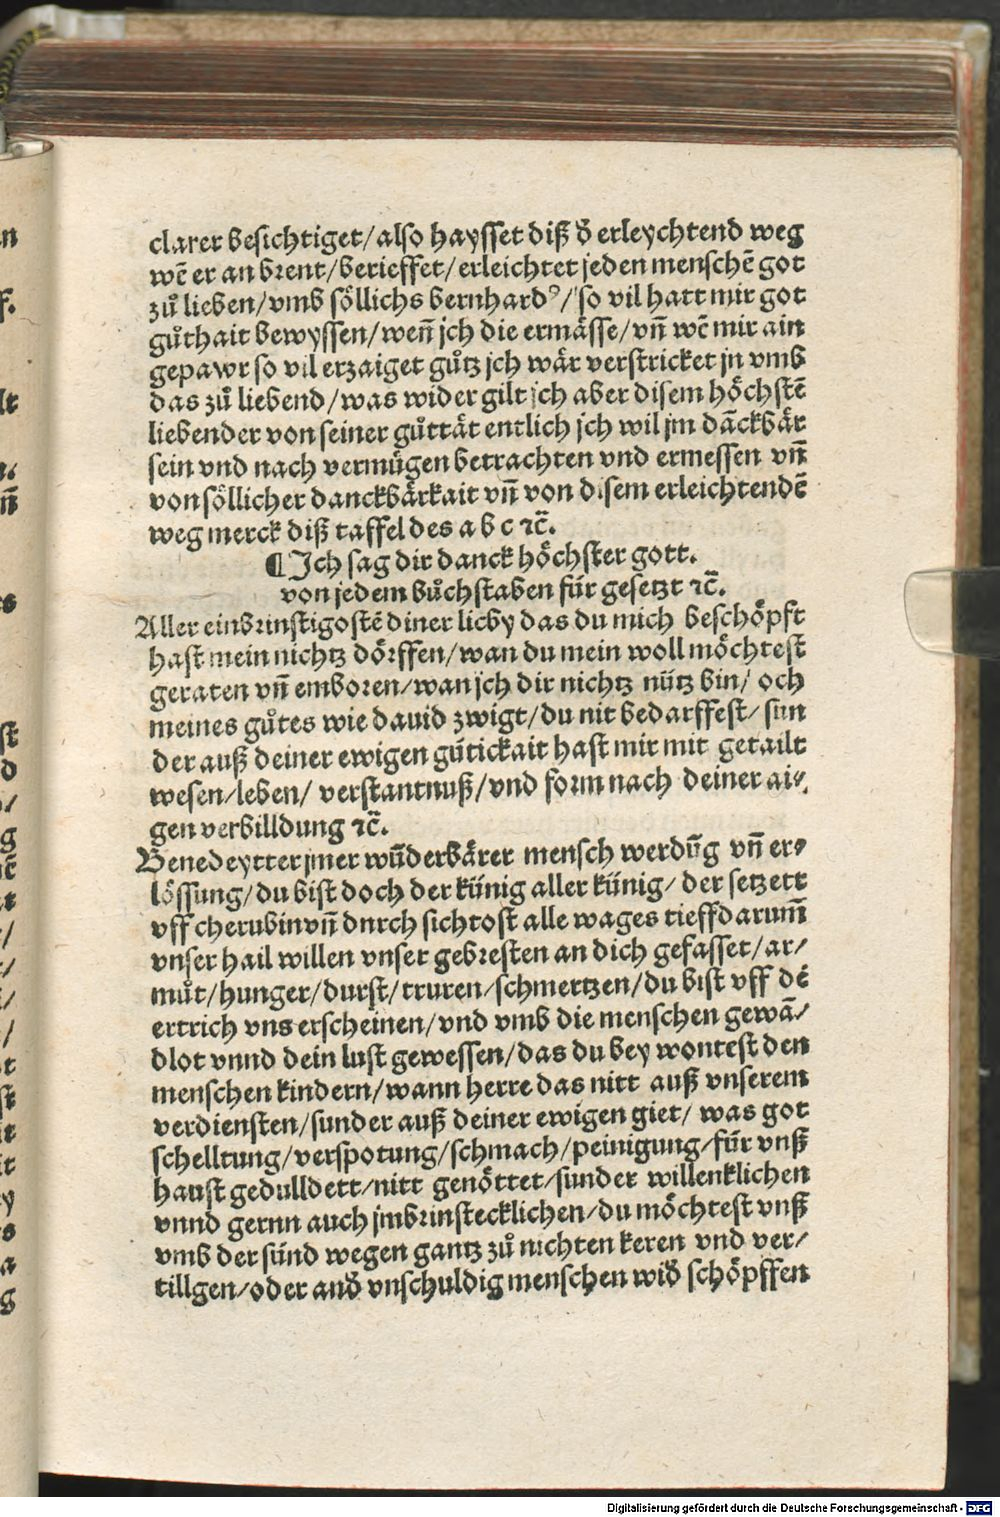 clarer besichtiget/also haysset diß d̕ erleychtend weg
wē er an brent/berieffet/erleichtet jeden menschē got
zů lieben/vmb söllichs bernhardꝰ/so vil hatt mir got
gůthait bewyssen/weñ jch die ermässe/vñ wē mir ain
gepawr so vil erzaiget gůtz jch wår verstricket jn vmb
das zů liebend/was wider gilt jch aber disem höchstē
liebender von seiner gůttåt entlich jch wil jm dāckbår
sein vnd nach vermügen betrachten vnd ermessen vñ
von söllicher danckbårkait vñ von disem erleichtendē
weg merck diß taffel des a b c ⁊c̄.
¶ Jch sag dir danck höchster gott.
von jedem bůchstaben für gesetzt ⁊c̄.
Aller einbrinstigostē diner lieby das du mich beschöpft
hast mein nichtz dörffen/wan du mein woll möchtest
geraten vñ emboren/wan jch dir nichtz nütz bin/ och
meines gůtes wie dauid zwigt/du nit bedarffest/ sun
der auß deiner ewigen gütickait hast mir mit getailt
wesen/leben/ verstantnuß/vnd form nach deiner ai⸗
gen verbilldung ⁊c̄.
Benedeytter jmer wūderbårer mensch werdūg vñ er⸗
lössung/du bist doch der künig aller künig/ der setzett
vff cherubin vñ durch sichtost alle wages tieff darum̄
vnser hail willen vnser gebresten an dich gefasset/ar/
můt/hunger/durst/truren/schmertzen/du bist vff dē
ertrich vns erscheinen/vnd vmb die menschen gewā/
dlot vnnd dein lust gewessen/das du bey wontest den
menschen kindern/wann herre das nitt auß vnserem
verdiensten/sunder auß deiner ewigen giet/ was got
schelltung/verspotung/schmach/peinigung/für vnß
haust gedulldett/nitt genöttet/sunder willenklichen
vnnd gernn auch jmbrinstecklichen/du möchtest vnß
vmb der sünd wegen gantz zů nichten keren vnd ver/
tillgen/oder and̕ vnschuldig menschen wid̕ schöpffen
Digitalisierung gefördert durch die Deutsche Forschungsgemeinschaft - DFG